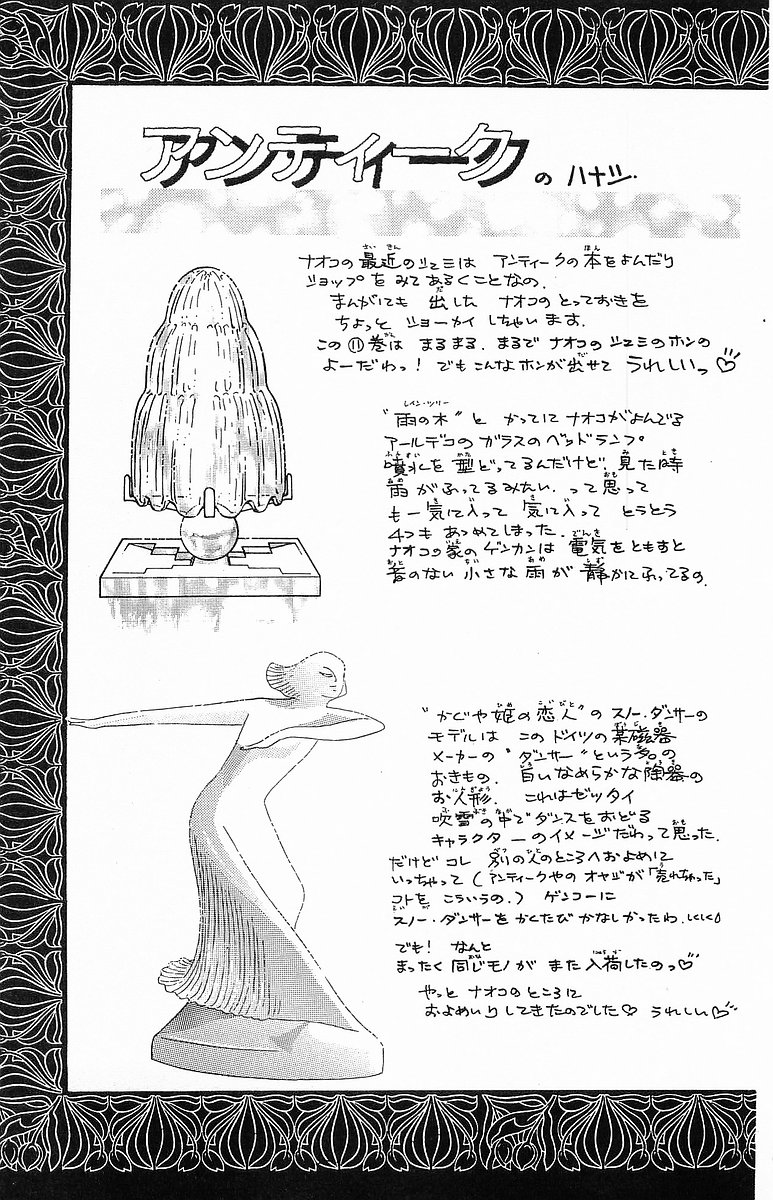 アンティークの ハナシ.
ナオコの最近のシュミは アンティークの本をよんだり
ショップをみてあるくことなの.
まんがにも 出した ナオコのとっておきを
ちょっと ショーカイ しちゃいます.
この⑪巻は まるまる. まるで ナオコのシュミのホンの
よーだわっ! でもこんなホンが出せて うれしいっ♡
"雨の木" と かってに ナオコがよんでる
アールデコの ガラスのベッドランプ
噴水を 型どってるんだけど. 見た時
雨がふってるみたい. って思って
もー気に入って 気に入って とうとう
4つも あつめてしまった.
ナオコの家のゲンカンは 電気をともすと
音のない 小さな 雨が 静かにふってるの.
"かぐや姫の恋人" の スノー・ダンサーの
モデルは この ドイツの某磁器
メーカーの "ダンサー" という名の
おきもの. 白いなめらかな陶器の
お人形. これはゼッタイ
吹雪の中でダンスをおどる
キャラクターのイメージだわって思った.
だけど コレ 別の人のところへおよめに
いっちゃって (アンティークやの オヤジが「売れちゃった」
コトを こういうの.) ゲンコーに
スノー・ダンサーを かくたび かなしかったわ. しくしく
でも! なんと
まったく 同じモノが また入荷したのっ♡
やっと ナオコのところに
およめいりしてきたのでした♡ うれしい♡